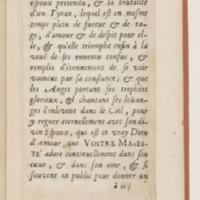 espoux pretendu, & la brutalité
d'un Tyran, lequel est en mesme
temps plein de fureur & de ra-
ge, d'amour & de despit pour el-
le, & qu'elle triomphe enfin à la
veuë de ses ennemis confus, &
remplis d'estonnement de se voir
vaincus par sa constance; & que
les Anges portant ses trophées
glorieux, & chantant ses loüan-
ges l'enlevent dans le Ciel, pour
y regner eternellement avec son di-
vin Espoux, qui est ce vray Dieu
d'Amour, que VOSTRE MAIES-
TE' adore continuellement dans son
cœur, & dans son ame, & si
souvent en public pour donner un
a iiij